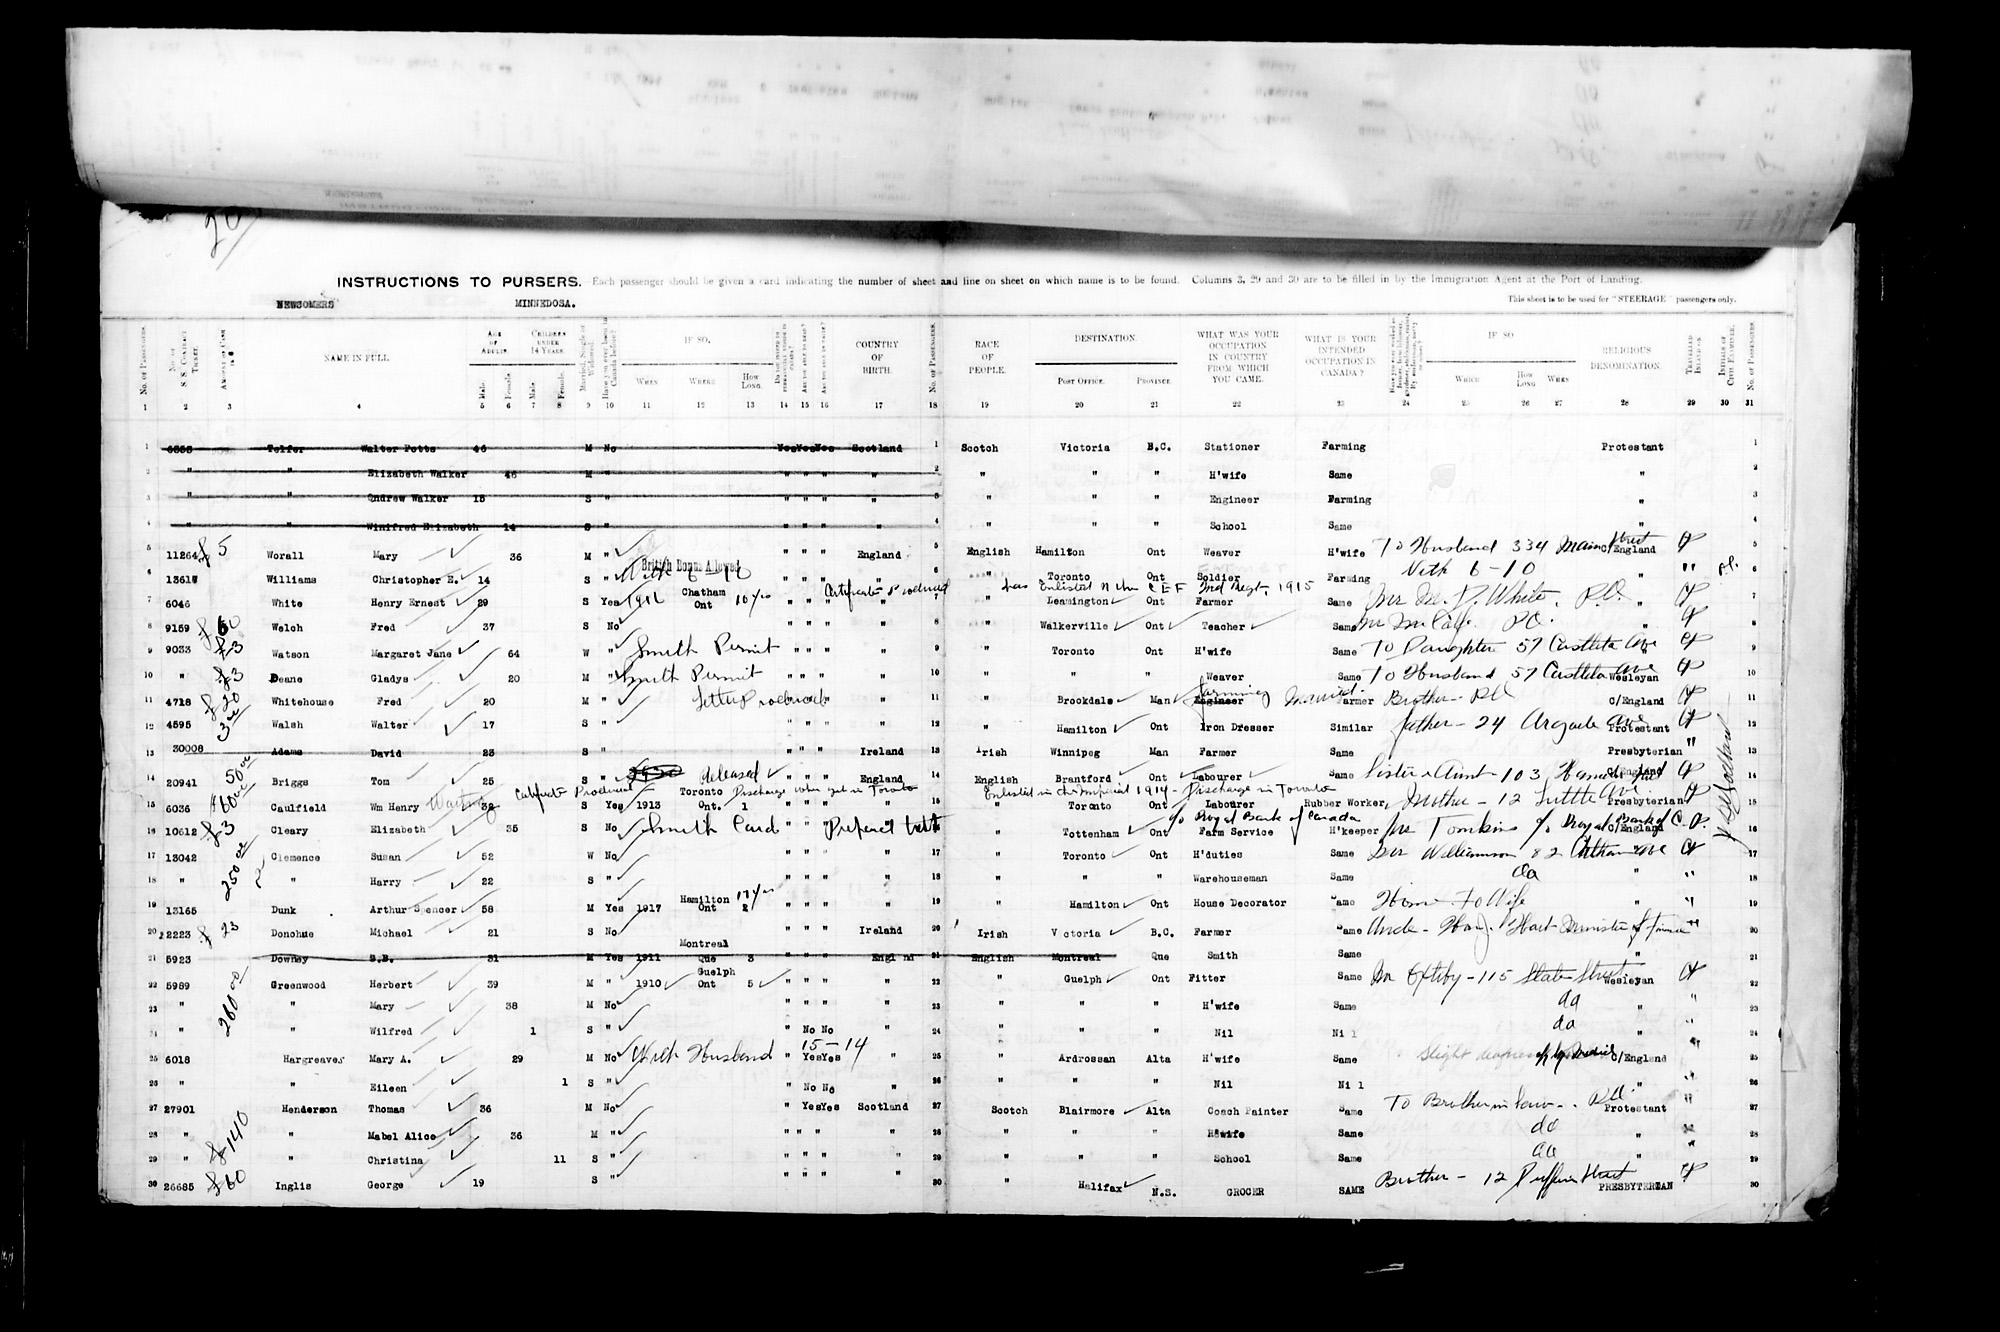 20
INSTRUCTIONS TO PURSERS. Each passenger should be given a card indicating the number of sheet and line on sheet on which name is to be found. Columns 3, 29 and 30 are to be filled in by the Immigration Agent at the Port of Landing.
NEWCOMERS MINNEDOSA. This sheet is to be used for "STEERAGE" passengers only.
No. of Passengers. No. of S.S. Contract Ticket. Amount of Cash in $ NAME IN FULL. AGE OF ADULTS Male. Female. CHILDREN UNDER 14 YEARS. Male. Female. Married, Single or Widowed. Have you ever been in Canada before? IF SO, WHEN WHERE HOW LONG. COUNTRY OF BIRTH. No. of Passengers. RACE OF PEOPLE. DESTINATION. POST OFFICE. PROVINCE. WHAT WAS YOUR OCCUPATION IN COUNTRY FROM WHICH YOU CAME. WHAT IS YOUR INTENDED OCCUPATION IN CANADA? IF SO WHICH HOW LONG WHEN RELIGIOUS DENOMINATION. TRAVELLED INLAND ON INITIALS OF CIVIL EXAMINER. No. of Passengers.
1 2 3 4 5 6 7 8 9 10 11 12 13 14 15 16 17 18 19 20 21 22 23 24 25 26 27 28 29 30 31
1 Telfer Walter Potts 46 M No Yes Yes Yes Scotland 1 Scotch Victoria B.C. Stationer Farming Protestant 1
2 " " Elizabeth Walker 46 M " " " " " 2 " " " H'wife Same " 2
3 " " Andrew Walker 18 S " " " " " 3 " " " Engineer Farming " 3
4 " " Winifred Elizabeth 14 S " " " " " 4 " " " School Same " 4
5 11264 £5 Worall Mary 36 M " " " " England 5 English Hamilton Ont Weaver H'wife To Husband 334 Main Street C/England 5
British Bonus Allowed
6 13617 Williams Christopher E. 14 S " With 6-10 " " " " 6 " Toronto Ont Soldier Farming With 6-10 " " 6
Certificate Produced has Enlisted in the C E F 2nd Regt, 1915
7 6046 White Henry Ernest 29 S Yes Chatham Ont 10 yrs " " " " 7 " Leamington Ont Farmer Same White. P.O. " 7
8 9159 £60 Welch Fred 37 S No " " " " 8 " Walkerville Ont Teacher Same P.O. " 8
9 9033 £3 Watson Margaret Jane 64 W " Smith Permit " " " " 9 " Toronto Ont H'wife Same To Daughter 57 Ave " 9
10 " £3 Deane Gladys 20 M " Smith Permit " " " " 10 " " " Weaver Same To Husband 57 Ave Wesleyan 10
11 4718 £20 Whitehouse Fred 20 M " Letter Produced " " " " 11 " Brookdale Man Farming Engineer Farmer Brother - P.O. C/England 11
12 4595 3 00 Walsh Walter 17 S " " " " " 12 " Hamilton Ont Iron Dresser Similar father - 24 Ave Protestant 12
13 30008 Adams David 23 S " " " " Ireland 13 Irish Winnipeg Man Farmer Same Presbyterian " 13
14 20941 50 00 Briggs Tom 25 S " Released " " " England 14 English Brantford Ont Labourer Same Sister & Aunt - 103 C/England 14
Certificate Produced Discharge when get in Toronto Enlisted in the Imperial 1914 - Discharge in Toronto
15 6036 60 00 Caulfield Wm Henry 32 S Yes 1913 Toronto Ont. 1 " " " " 15 " Toronto Ont Labourer Rubber Worker, Mother - 12 Little Ave. Presbyterian 15
c/o Royal Bank of Canada
16 10612 £3 Cleary Elizabeth 35 S No Smith Card " " " 16 " Tottenham Ont Farm Service H'keeper Mr Tomkins c/o Royal Bank of C. C/England 16
17 13042 250 00 Clemence Susan 52 W No " " " " 17 " Toronto Ont H'duties Same Williamson 82 Ave " 17
18 " " Harry 22 S " " " " " 18 " " " Warehouseman Same do " " 18
19 13165 Dunk Arthur Spencer 58 M Yes 1917 Hamilton Ont 17 yrs 2 " " " " 19 " Hamilton Ont House Decorator Same Home - To Wife " " 19
20 2223 £ 23 Donohue Michael 21 S No " " " Ireland 20 Irish Victoria B.C. Farmer Same Uncle - Hon J. Hart Minister of Finance " 20
21 5923 Downey S.B. 31 M Yes 1911 Montreal Que 3 " " " England 21 English Montreal Que Smith Same " 21
22 5989 Greenwood Herbert 39 M " 1910 Guelph Ont 5 " " " " 22 " Guelph Ont Fitter Same 115 State Street Wesleyan 22
23 " 260 00 " Mary 38 M No " " " " 23 " " " H'wife Same do " " 23
24 " " Wilfred 1 S " " No No " 24 " " " Nil Nil do " " 24
25 6018 Hargreaves Mary A. 29 M No With Husband 15-14 " Yes Yes " 25 " Ardrossan Alta H'wife Same C/England " 25
26 " " Eileen 1 S " " No No " 26 " " " Nil Nil " " 26
27 27901 Henderson Thomas 36 M No " Yes Yes Scotland 27 Scotch Blairmore Alta Coach Painter Same To Brother in law - P.O. Protestant " 27
28 " £140 " Mabel Alice 36 M " " " " " 28 " " " H'wife Same do " 28
29 " " Christina 11 S " " " " " 29 " " " School Same do " " 29
30 26685 £60 Inglis George 19 S " " " " 30 " Halifax N.S. GROCER SAME Brother - 12 Street PRESBYTERIAN 30